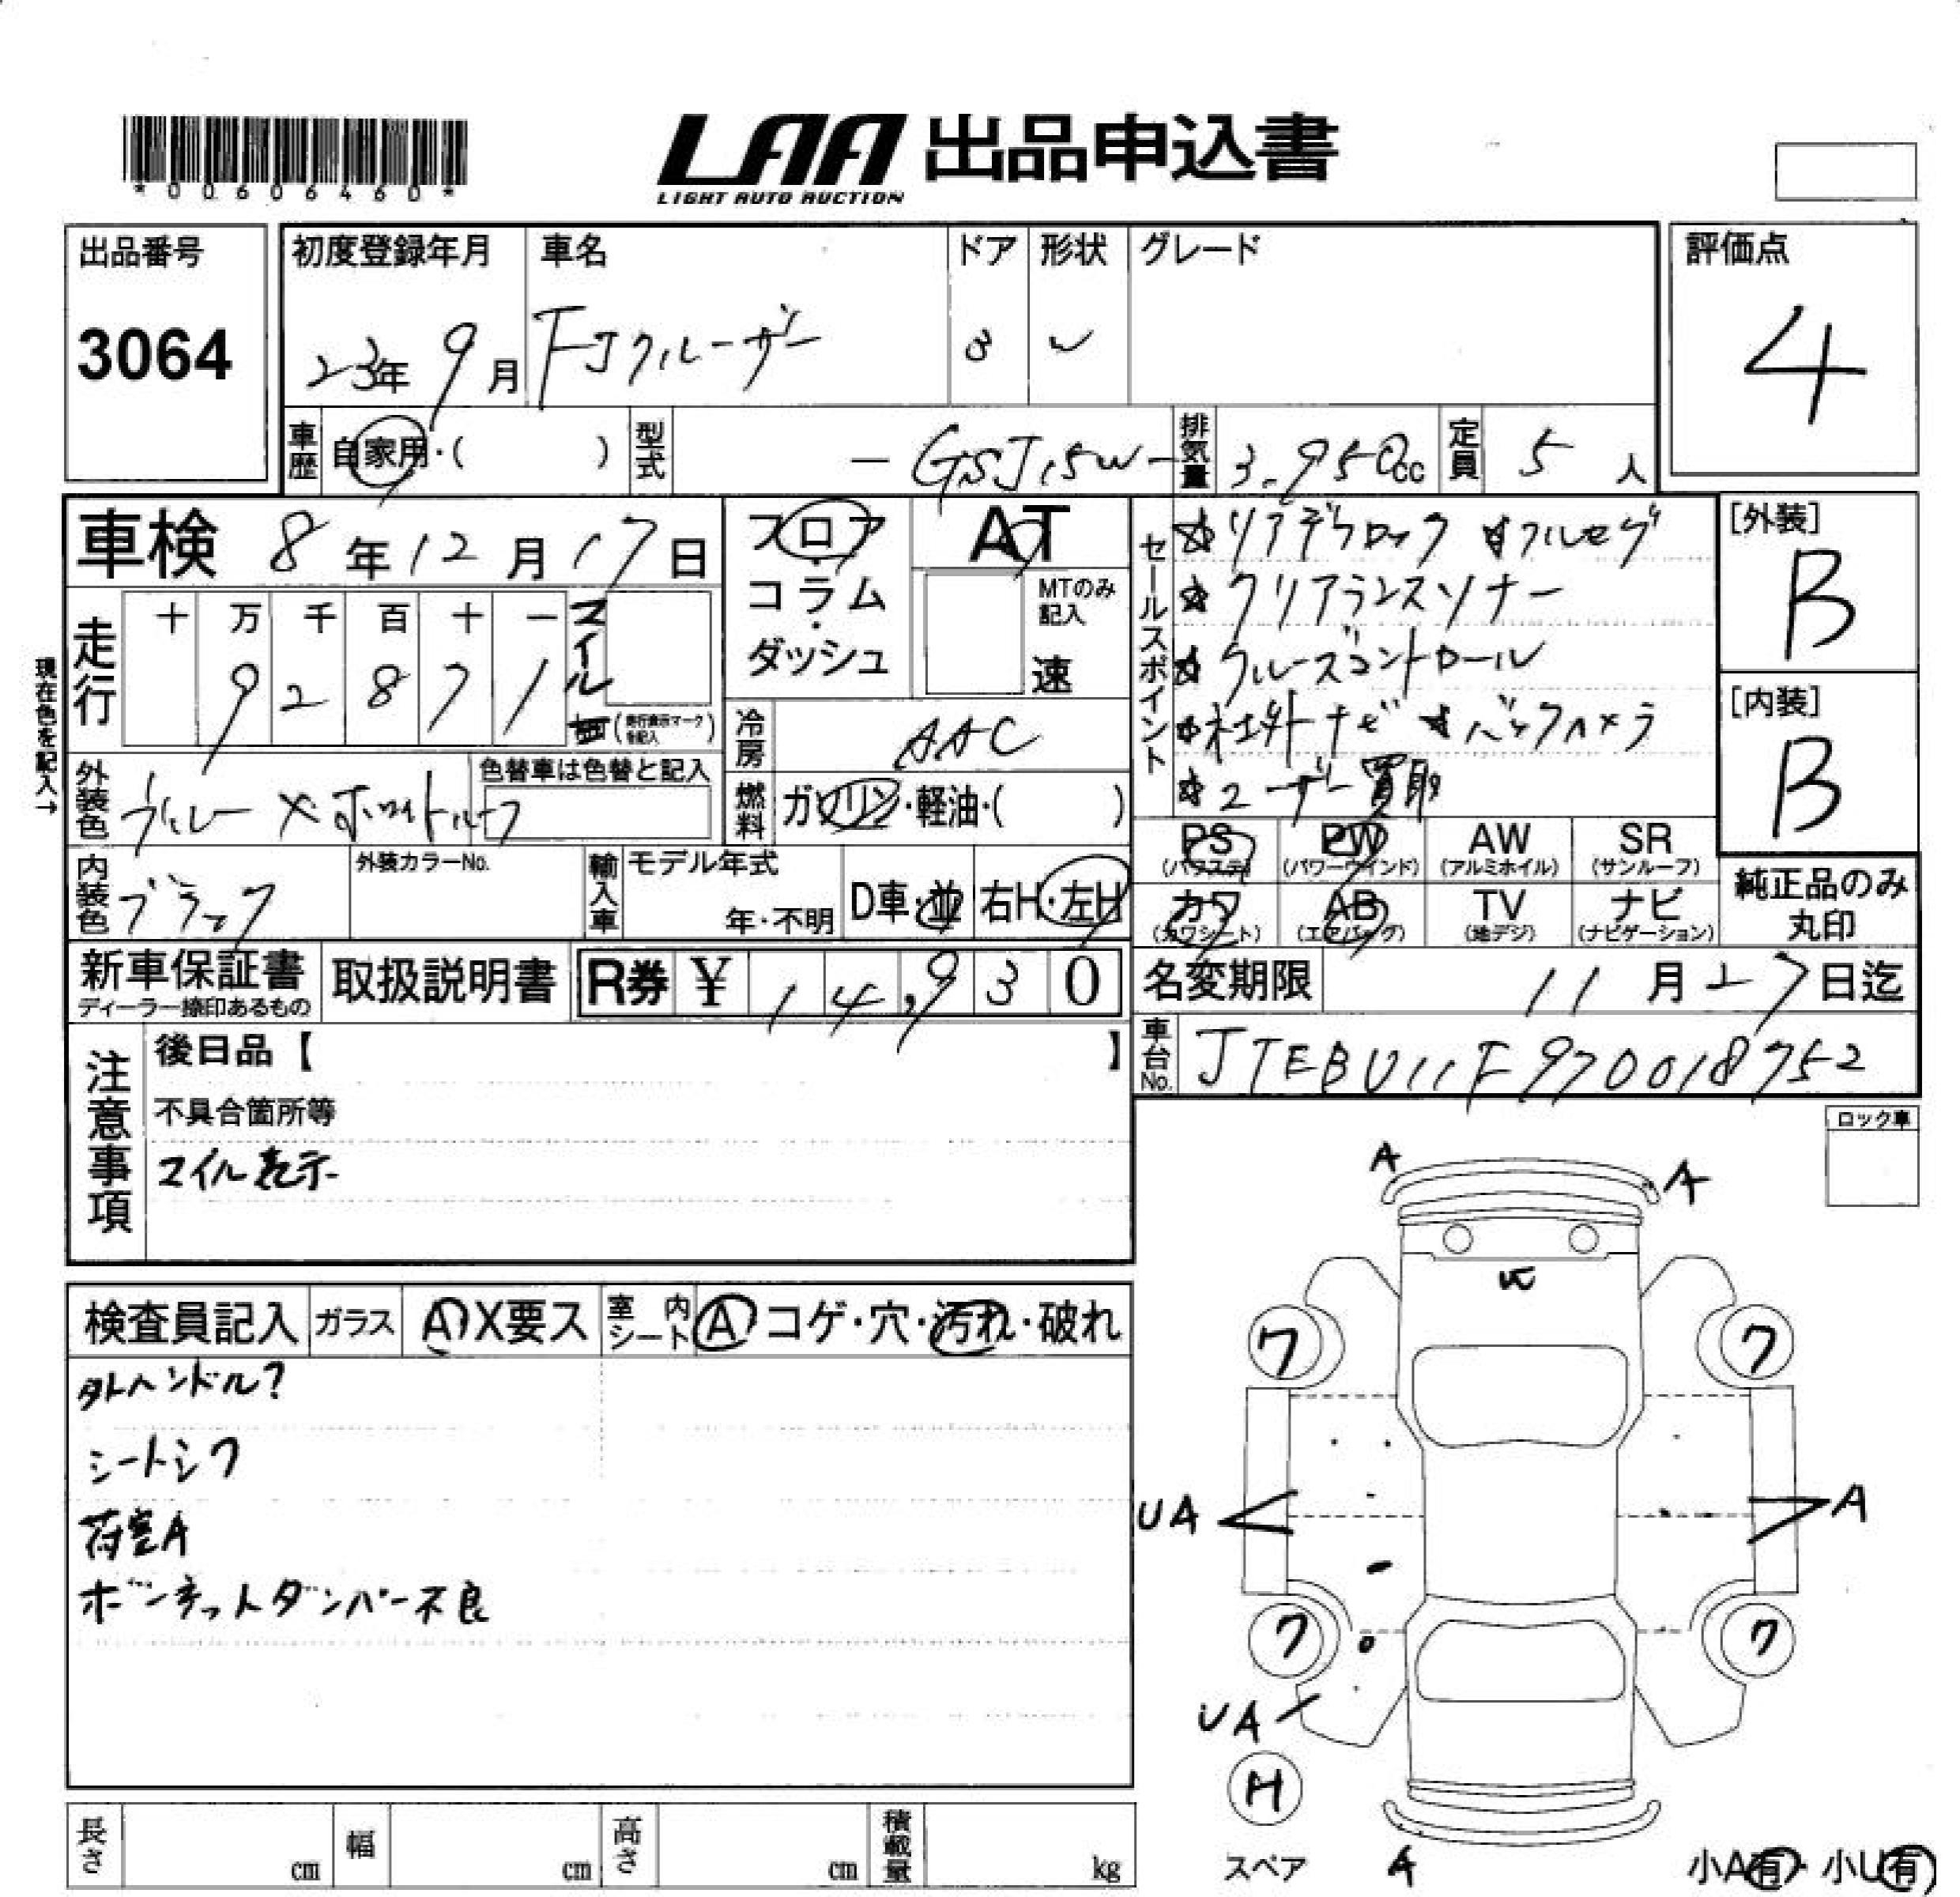 *00606460*
LAA 出品申込書
LIGHT AUTO AUCTION
出品番号
3064
初度登録年月
23年 9月
車名
FJクルーザー
ドア
3
形状
W
グレード
評価点
4
車歴
自家用・( )
型式
-GSJ15W-
排気量
3.950cc
定員
5人
車検 8年12月17日
フロア・コラム・ダッシュ
AT
MTのみ記入
速
セールスポイント
☆リアデフロック ☆フルセグ
☆クリアランスソナー
☆クルーズコントロール
☆社外ナビ ☆バックカメラ
☆ユーザー買取
[外装]
B
[内装]
B
現在色を記入→
走行
十 万 千 百 十 一
9 2 8 7 1
マイル
(走行表示マークを記入)
冷房
AAC
外装色
ブルー×ホワイトルーフ
色替車は色替と記入
燃料
ガソリン・軽油・( )
PS
(パワステ)
PW
(パワーウインド)
AW
(アルミホイル)
SR
(サンルーフ)
内装色
ブラック
外装カラーNo.
輸入車
モデル年式
年・不明
D車・並
右H・左H
カワ
(カワシート)
AB
(エアバッグ)
TV
(地デジ)
ナビ
(ナビゲーション)
純正品のみ丸印
新車保証書
ディーラー捺印あるもの
取扱説明書
R券 ¥ 14,930
名変期限
11月27日迄
車台No.
JTEBU11F970018752
注意事項
後日品【 】
不具合箇所等
マイル表示
ロック車
検査員記入
ガラス
A X要ス
室内シート
A コゲ・穴・汚れ・破れ
外ハンドル?
シートシワ
荷室A
ボンネットダンパー不良
A
A
ワ
ワ
UA
A
ワ
ワ
UA
H
スペア
A
小A有・小U有
長さ cm
幅 cm
高さ cm
積載量 kg